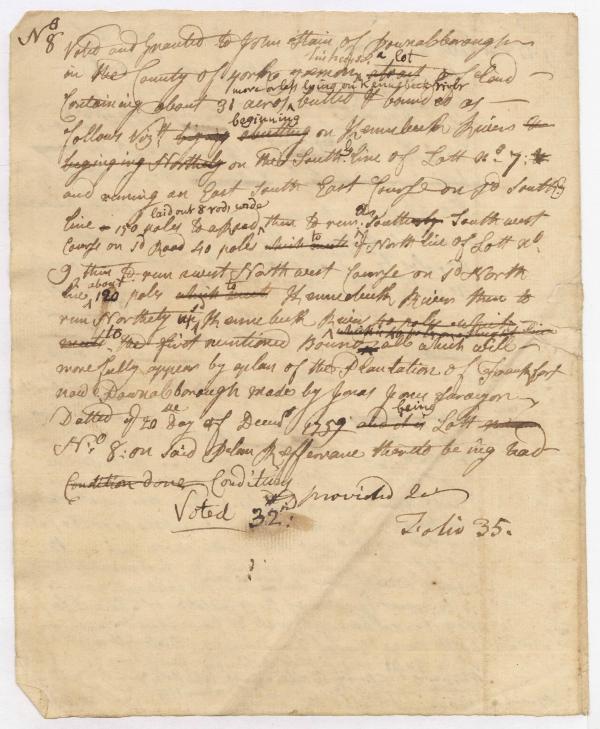 No 8
Voted and Granted to John Stain of Pownalborough
in the County of York yeoman in fee a lot about of land
Containing about 31 acres more or less lying on Kennebeck River butted & bounded as
follows Vizt being abutting beginning on Kennebeck River the
beginging Northerly on the South line of Lott No 7:
and runing an East South East Course on sd South
line 150 poles to a Road laid out 8 rods wide then to run Southerly South west
Course on sd Road 40 poles which to North line of Lott No
9 then to run a west North west Course on sd North
line about 120 poles which to Kennebeck River then to
run Northerly up sd Kennebeck River 40 poles
to the first mentioned Bound all which will
more fully appear by a plan of the Plantation of Frankfort
now Pownalborough made by Jonas Jones Surveyor
Datted ye 20 Day of Decemr 1759 and is being Lott
No 8: on said Plan Refferrance thereto being had
Condition done Conditions
provided &c
Voted 32nd:
Folio 35.